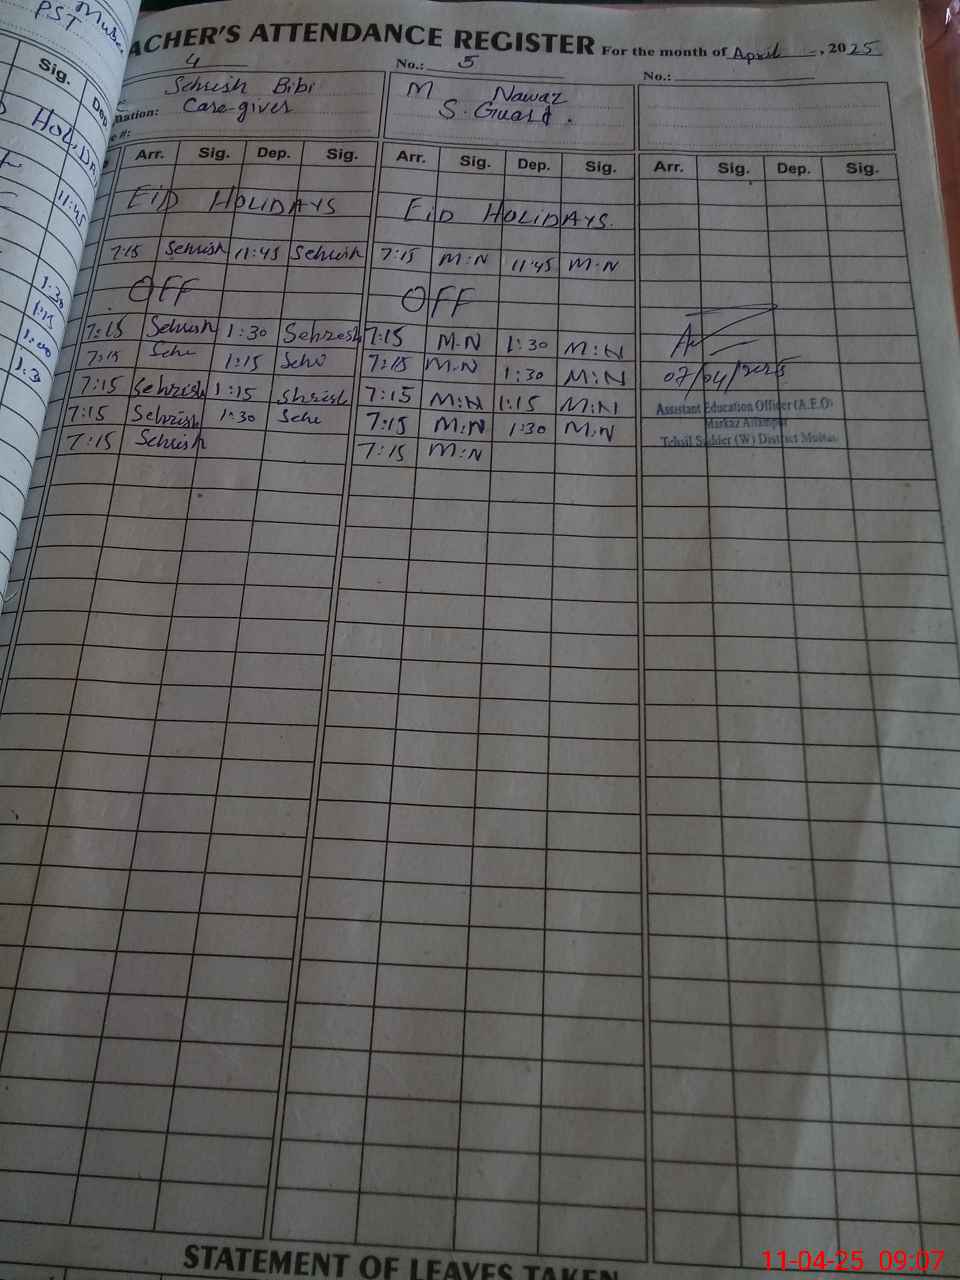 PST Mube
Sig.
HOLIDA
11:45
1:30
1:15
1:00
1:3
ACHER'S ATTENDANCE REGISTER For the month of April, 2025
4
Sehrish Bibi
nation: Care-giver
e #:
No.: 5
M Nawaz
S. Guard.
No.:
Arr. Sig. Dep. Sig. Arr. Sig. Dep. Sig. Arr. Sig. Dep. Sig.
EID HOLIDAYS EID HOLIDAYS.
7:15 Sehrish 11:45 Sehrish 7:15 M:N 11:45 M:N
OFF OFF
7:15 Sehrish 1:30 Sehresh 7:15 M.N 1:30 M:N
7:15 Sehe 1:15 Sehe 7:15 M:N 1:30 M:N
7:15 Sehrish 1:15 Shrish 7:15 M:N 1:15 M:N
7:15 Sehrish 1:30 Sehe 7:15 M:N 1:30 M:N
7:15 Sehrish 7:15 M:N
07/04/2025
Assistant Education Officer (A.E.O)
Markaz
Tehsil Sadder (W) District Multan
STATEMENT OF LEAVES TAKEN
11-04-25 09:07